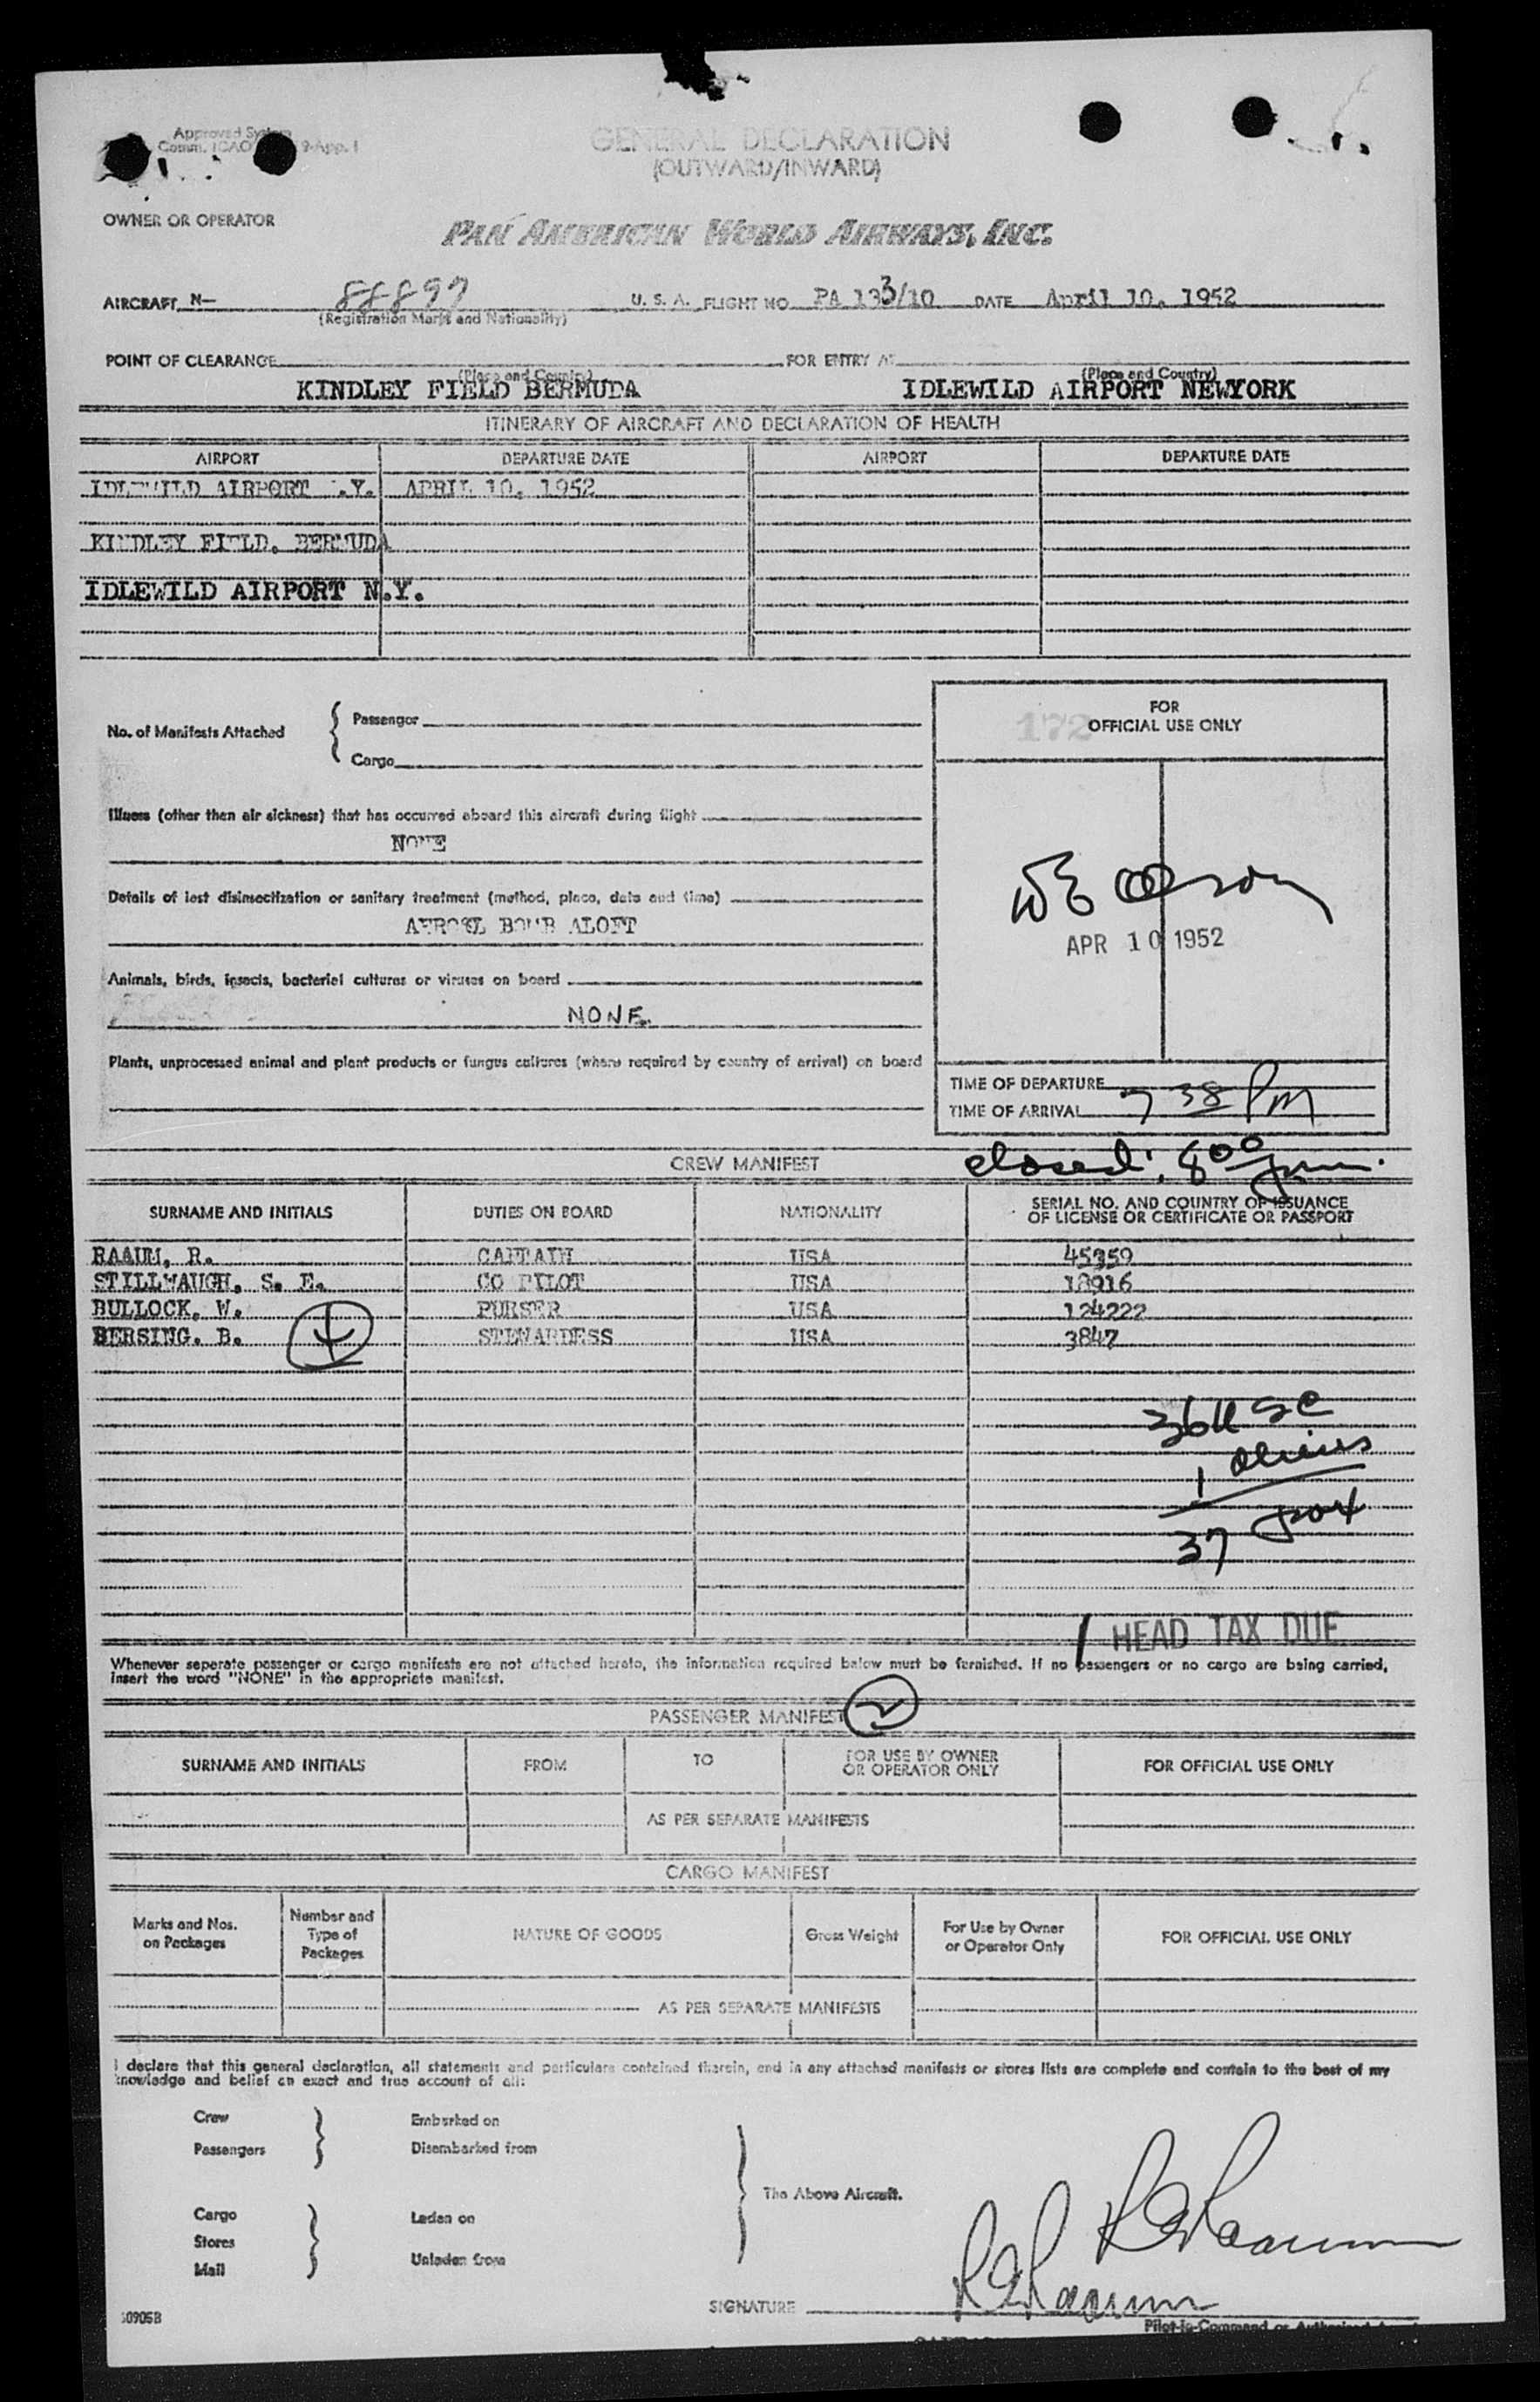 Approved
Comm. ICAO 9-App. 1
GENERAL DECLARATION
(OUTWARD/INWARD)
OWNER OR OPERATOR
PAN AMERICAN WORLD AIRWAYS, INC.
AIRCRAFT N- 88897 U. S. A. FLIGHT NO. PA 133/10 DATE April 10, 1952
(Registration Marks and Nationality)
POINT OF CLEARANCE FOR ENTRY AT
(Place and Country) (Place and Country)
KINDLEY FIELD BERMUDA IDLEWILD AIRPORT NEWYORK
ITINERARY OF AIRCRAFT AND DECLARATION OF HEALTH
AIRPORT DEPARTURE DATE AIRPORT DEPARTURE DATE
IDLEWILD AIRPORT N.Y. APRIL 10, 1952
KINDLEY FIELD, BERMUDA
IDLEWILD AIRPORT N.Y.
No. of Manifests Attached { Passenger
Cargo
FOR
172 OFFICIAL USE ONLY
Illness (other than air sickness) that has occurred aboard this aircraft during flight
NONE
Details of last disinsectization or sanitary treatment (method, place, date and time)
AEROSL BOMB ALOFT
APR 10 1952
Animals, birds, insects, bacterial cultures or viruses on board
NONE
Plants, unprocessed animal and plant products or fungus cultures (where required by country of arrival) on board
TIME OF DEPARTURE
TIME OF ARRIVAL 7 38 PM
closed: 8 00 pm.
CREW MANIFEST
SURNAME AND INITIALS DUTIES ON BOARD NATIONALITY SERIAL NO. AND COUNTRY OF ISSUANCE
OF LICENSE OR CERTIFICATE OR PASSPORT
RAAUM, R. CAPTAIN USA 45359
STILLWAUGH, S. E. CO PILOT USA 18916
BULLOCK, W. PURSER USA 124222
BERSING. B. 4 STEWARDESS USA 3847
36 USC
1 aliens
37 pax
1 HEAD TAX DUE
Whenever seperate passenger or cargo manifests are not attached hereto, the information required below must be furnished. If no passengers or no cargo are being carried,
insert the word "NONE" in the appropriate manifest.
PASSENGER MANIFEST 2
SURNAME AND INITIALS FROM TO FOR USE BY OWNER
OR OPERATOR ONLY FOR OFFICIAL USE ONLY
AS PER SEPARATE MANIFESTS
CARGO MANIFEST
Marks and Nos.
on Packages Number and
Type of
Packages NATURE OF GOODS Gross Weight For Use by Owner
or Operator Only FOR OFFICIAL USE ONLY
AS PER SEPARATE MANIFESTS
I declare that this general declaration, all statements and particulars contained therein, and in any attached manifests or stores lists are complete and contain to the best of my
knowledge and belief an exact and true account of all:
Crew Embarked on
Passengers Disembarked from
The Above Aircraft.
Cargo Laden on
Stores
Mail Unladen from
R E Raaum
R E Raaum
SIGNATURE
Pilot-in-Command or Authorized
50905B